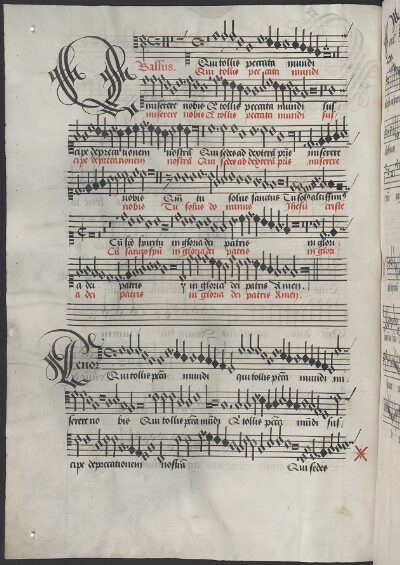 Bassus. Qui tollis peccata mundi
Qui tollis peccata mundi
miserere nobis Q tollis peccata mundi sus
miserere nobis Q tollis peccata mundi sus
cipe deprecationem nostrā Qui sedes ad dexterā pris miserere
cipe deprecationem nostrā Qui sedes ad dexterā pris miserere
nobis Qm̄ tu solus sanctus Tu sol9 altissim9
nobis Tu solus dominus Jhesu criste
Cū sctō spiritu in gloria dei patris in glori
Cū sancto spū in gloria dei patris in glori
a dei patris in gloria dei patris Amen.
a dei patris in gloria dei patris Amen.
Tenor
Qui tollis pctā mundi qui tollis pctā mundi mi
serere no bis Qui tollis pctā mūdi Q tollis pctā mūdi sus
cipe deprecationem nostrā Qui sedes